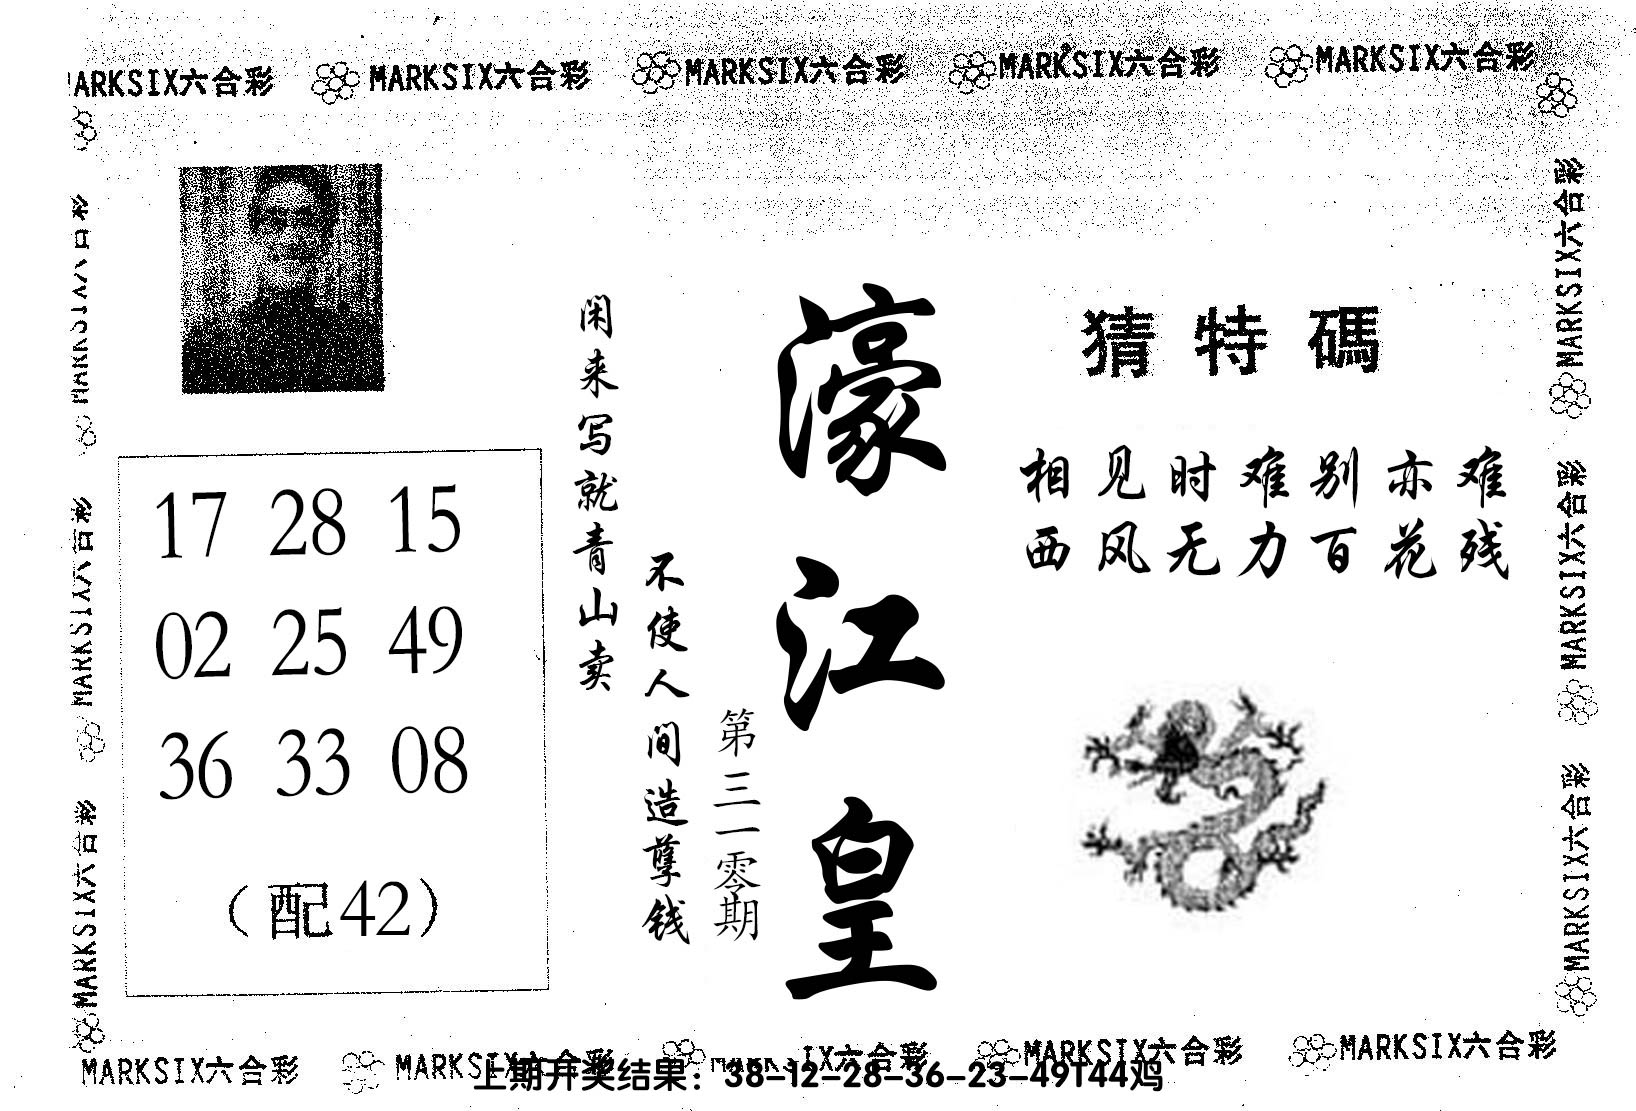 MARKSIX六合彩 MARKSIX六合彩 MARKSIX六合彩 MARKSIX六合彩 MARKSIX六合彩
MARKSIX六合彩
MARKSIX六合彩
MARKSIX六合彩
17 28 15
02 25 49
36 33 08
（配42）
闲来写就青山卖
不使人间造孽钱
第三一零期
濠江皇
猜特碼
相见时难别亦难
西风无力百花残
MARKSIX六合彩
MARKSIX六合彩
MARKSIX六合彩
MARKSIX六合彩 MARKSIX六合彩 MARKSIX六合彩 MARKSIX六合彩 MARKSIX六合彩
上期开奖结果：38-12-28-36-23-49T44鸡